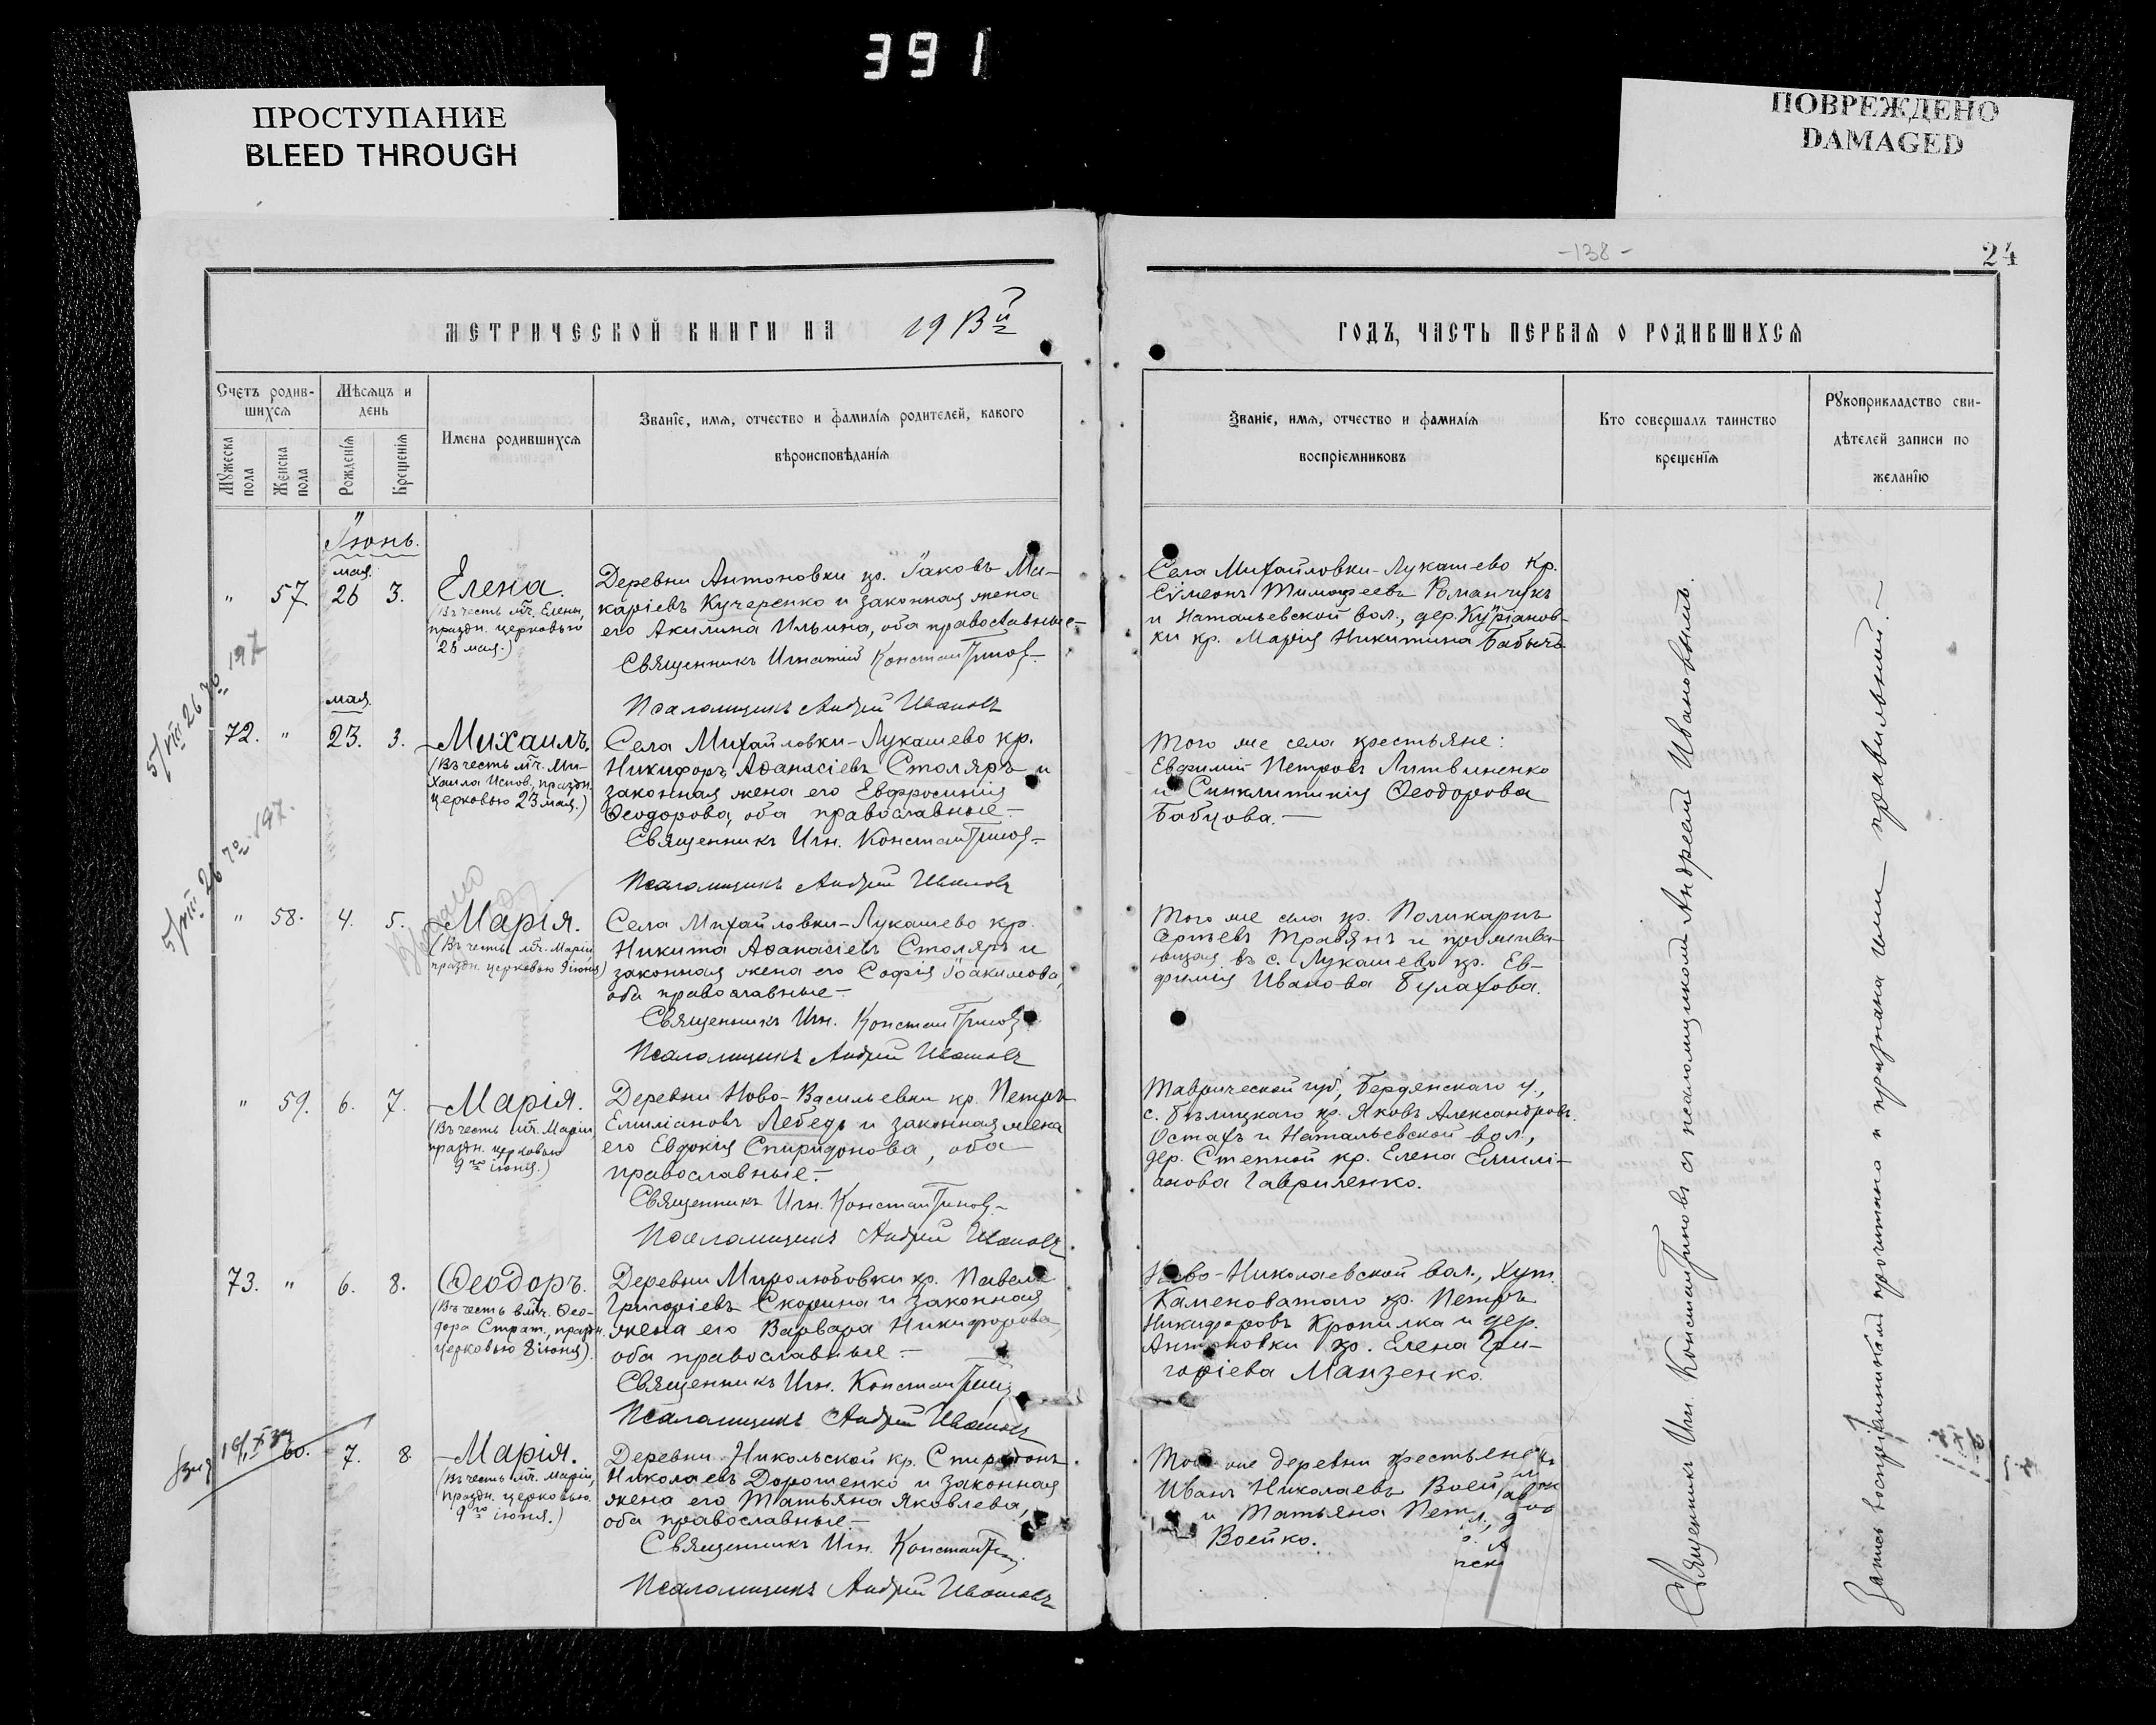 391
ПРОСТУПАНИЕ
BLEED THROUGH
ПОВРЕЖДЕНО
DAMAGED
-138-
24
МЕТРИЧЕСКОЙ КНИГИ НА 1913й
ГОДЪ, ЧАСТЬ ПЕРВАЯ О РОДИВШИХСЯ
Счетъ родив-
шихся
Мужеска пола
Женска пола
Мѣсяцъ и
день
Рожденія
Крещенія
Имена родившихся
Званіе, имя, отчество и фамилія родителей, какого
вѣроисповѣданія
Званіе, имя, отчество и фамилія
воспріемниковъ
Кто совершалъ таинство
крещенія
Рукоприкладство сви-
дѣтелей записи по
желанію
Іюнь.
мая.
" 57 26 3.
Елена.
(Въ честь мч. Елены,
праздн. церковью
26 мая.)
Деревни Антоновки кр. Іаковъ Ма-
каріевъ Кучеренко и законная жена
его Акилина Ильина, оба православные-
Священникъ Игнатій Константинов
Псаломщикъ Андрей Ивановъ
Села Михайловки-Лукашево кр.
Сѵмеонъ Тимоѳеевъ Романчукъ
и Натальевской вол., дер. Купріанов-
ки кр. Марія Никитина Бабычъ
мая.
72. " 23. 3.
Михаилъ.
(Въ честь мч. Ми-
хаила Испов., праздн.
церковью 23 мая.)
Села Михайловки-Лукашево кр.
Никифоръ Аѳанасіевъ Столяръ и
законная жена его Евфросинія
Ѳеодорова, оба православные-
Священникъ Игн. Константинов
Псаломщикъ Андрей Ивановъ
Того же села крестьяне:
Евфимій Петровъ Литвиненко
и Синклитикія Ѳеодорова
Бабцова.-
" 58. 4. 5.
Марія.
(Въ честь мч. Маріи,
праздн. церковью 9 іюня)
Села Михайловки-Лукашево кр.
Никита Аѳанасіевъ Столяръ и
законная жена его Софія Іоакимова,
оба православные-
Священникъ Игн. Константинов
Псаломщикъ Андрей Ивановъ
Того же села кр. Поликарпъ
Сергѣевъ Травянъ и прожива-
ющая въ с. Лукашево кр. Ев-
фимія Иванова Булахова.
" 59. 6. 7.
Марія.
(Въ честь мч. Маріи,
праздн. церковью
9го іюня.)
Деревни Ново-Васильевки кр. Петръ
Емиліановъ Лебедь и законная жена
его Евдокія Спиридонова, оба
православные-
Священникъ Игн. Константинов
Псаломщикъ Андрей Ивановъ
Таврической губ., Бердянскаго у.,
с. Бѣлицкаго кр. Яковъ Александровъ
Остахъ и Натальевской вол.,
дер. Степной кр. Елена Емили-
анова Гавриленко.
73. " 6. 8.
Ѳеодоръ.
(Въ честь вмч. Ѳео-
дора Страт., праздн.
церковью 8 іюня).
Деревни Миролюбовки кр. Павелъ
Григоріевъ Скорина и законная
жена его Варвара Никифорова,
оба православные-
Священникъ Игн. Константинов
Псаломщикъ Андрей Ивановъ
Ново-Николаевской вол., хут.
Каменоватаго кр. Петръ
Никифоровъ Кропилка и дер.
Антоновки кр. Елена Гри-
горіева Манзенко.
60. 7. 8
Марія.
(Въ честь мч. Маріи,
праздн. церковью
9го іюня.)
Деревни Никольской кр. Спиридонъ
Николаевъ Дорошенко и законная
жена его Татьяна Яковлева,
оба православные-
Священникъ Игн. Константинов
Псаломщикъ Андрей Ивановъ
Той же деревни крестьяне
Иванъ Николаевъ
и Татьяна
Воейко.
Священникъ Игн. Константиновъ съ псаломщикомъ Андреемъ Ивановымъ.
Запись воспріемниками прочитана и признана ими правильной.-